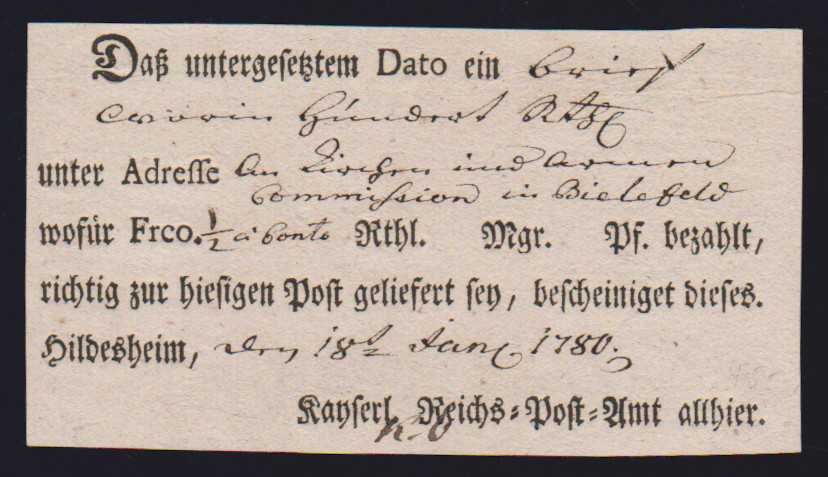 Daß untergesetztem Dato ein Brief
worin Hundert Rthl
unter Adresse An Kirchen und Armen
Commission in Bielefeld
wofür Frco. 1/2 a Conto Rthl. Mgr. Pf. bezahlt,
richtig zur hiesigen Post geliefert sey, bescheiniget dieses.
Hildesheim, den 18t Jan 1780.
Kayserl. Reichs-Post-Amt allhier.